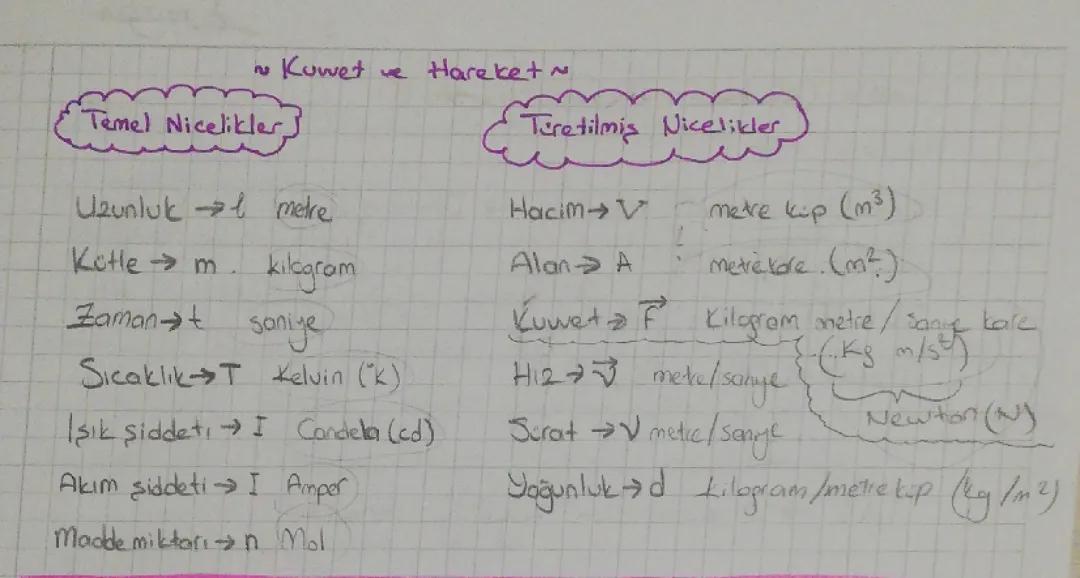 ~ Kuvvet ve Hareket ~
Temel Nicelikler
Uzunluk → l metre
Kütle → m. kilogram
Zaman → t saniye
Sıcaklık → T Kelvin (°K)
Işık şiddeti → I Candela (cd)
Akım şiddeti → I Amper
Madde miktarı → n Mol
Türetilmiş Nicelikler
Hacim → V metre küp (m³)
Alan → A metrekare (m²)
Kuvvet → F kilogram metre / saniye kare
(kg m/s²)
Newton (N)
Hız → V metre/saniye
Sürat → V metre/saniye
Yoğunluk → d kilogram/metre küp (kg/m²)